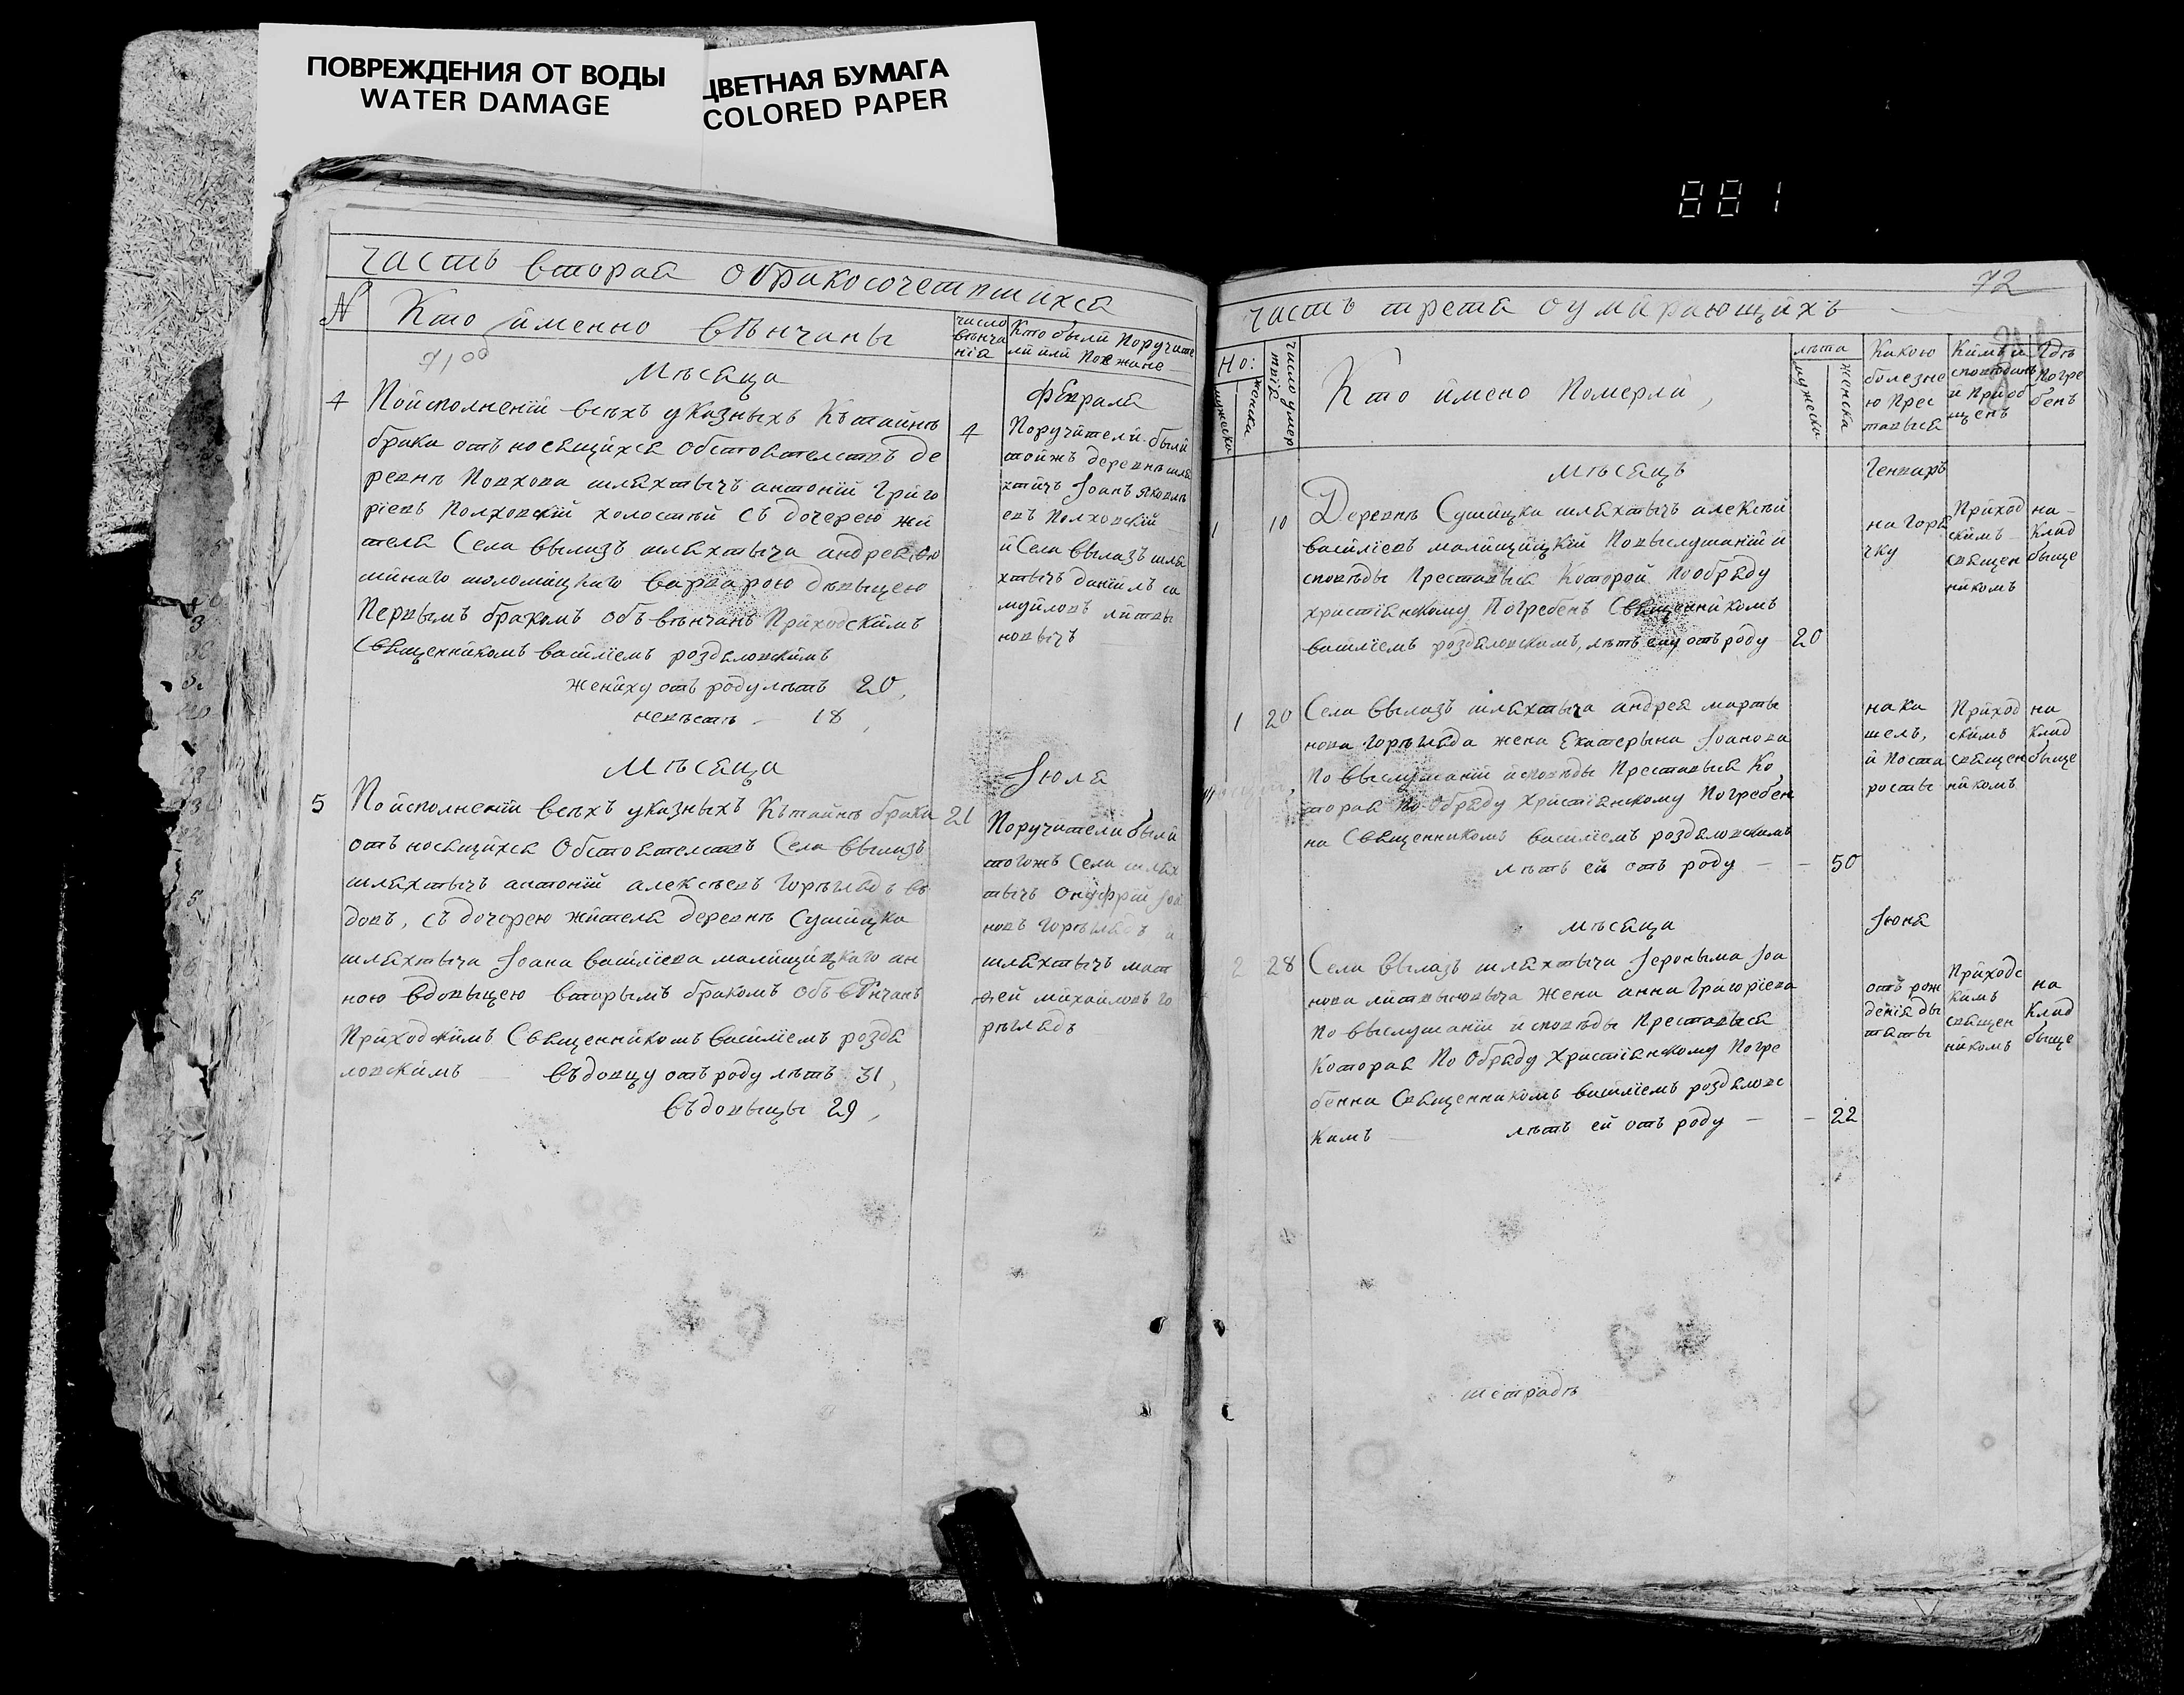 ПОВРЕЖДЕНИЯ ОТ ВОДЫ
WATER DAMAGE
ЦВЕТНАЯ БУМАГА
COLORED PAPER
881
часть вторая обракосочетавшихся
№
Кто именно вѣнчаны
число вѣнча нїя
Кто были Поручите ли или Поезжане
Мѣсяца
Февраля
4
Поисполненїи всѣхъ указныхъ Къ тайнѣ
брака отъ носящихся обстоятелствъ де
ревнѣ Повхова шляхтычъ антонїй Григо
рїевъ Полховскїй холостый съ дочерею жи
теля Села Вылазъ шляхтыча андрея
варварою дѣвыцею
Первымъ бракомъ объ вѣнчанъ Приходскимъ
Священникомъ василїемъ роздяловскимъ
жениху отъ роду лѣтъ 20,
невѣстѣ 18,
4
Поручители были
тойжъ деревнѣ шля
хтичъ Іоанъ яковл
евъ Полховскїй
и Села Вылазъ шля
хтычъ данїилъ са
муйловъ литвы
новычъ
Мѣсяца
Іюля
5
Поисполненїи всѣхъ указныхъ Къ тайнѣ брака
отъ носящихся Обстоятелствъ Села Вылазъ
шляхтычъ антонїй алексѣевъ Горѣглядъ въ
довъ, съ дочерею жителя деревнѣ Сушицка
шляхтыча Іоана василїева малищицкаго ан
ною вдовыцею вторымъ бракомъ объ вѣнчанъ
Приходскимъ Священникомъ василїемъ роздя
ловскимъ въдовцу отъ роду лѣтъ 31,
въдовыцы 29,
21
Поручители были
тогожъ Села шлях
тычъ Онуфрїй Іоа
новъ Горѣглядъ и
шляхтычъ мат
ѳей михайловъ Го
рѣглядъ
72
часть третя оумирающихъ
Но:
мужеска
женска
число умертвїя
Кто имено Померли,
лѣта
мужеска
женска
Какою болезне ю Прес тавыся
Кимъ и сповѣданъ и Приоб щенъ
Гдѣ Погре бенъ
мѣсяцъ
Генваръ
1
10
Деревнѣ Сушицка шляхтычъ алексѣй
василїевъ малищицкїй Повыслушанїи и
сповѣды Преставыся Которой Пообряду
христїянскому Погребенъ Священникомъ
василїемъ роздяловскимъ, лѣтъ ему отъ роду
20
на горя
чку
Приход
скимъ
священ
никомъ
на
клад
быще
1
20
Села Вылазъ шляхтыча андрея марты
нова Горѣгляда жена Екатерына Іоанова
По выслушанїи исповѣды Преставыся Ко
торая По Обряду Христїянскому Погребен
на Священникомъ василїемъ роздяловскимъ
лѣтъ ей отъ роду
50
на ка
шель,
и Поста
росты
Приход
скимъ
священ
никомъ
на
клад
быще
мѣсяца
Іюня
2
28
Села Вылазъ шляхтыча Іероныма Іоа
нова литвыновыча Жена анна Григорїева
По выслушанїи исповѣды Преставыся
Которая По Обряду Христїянскому Погре
бенна Священникомъ василїемъ роздяловс
кимъ лѣтъ ей отъ роду
22
отъ рож
денїя ды
тяты
Приходс
кимъ
священ
никомъ
на
клад
быще